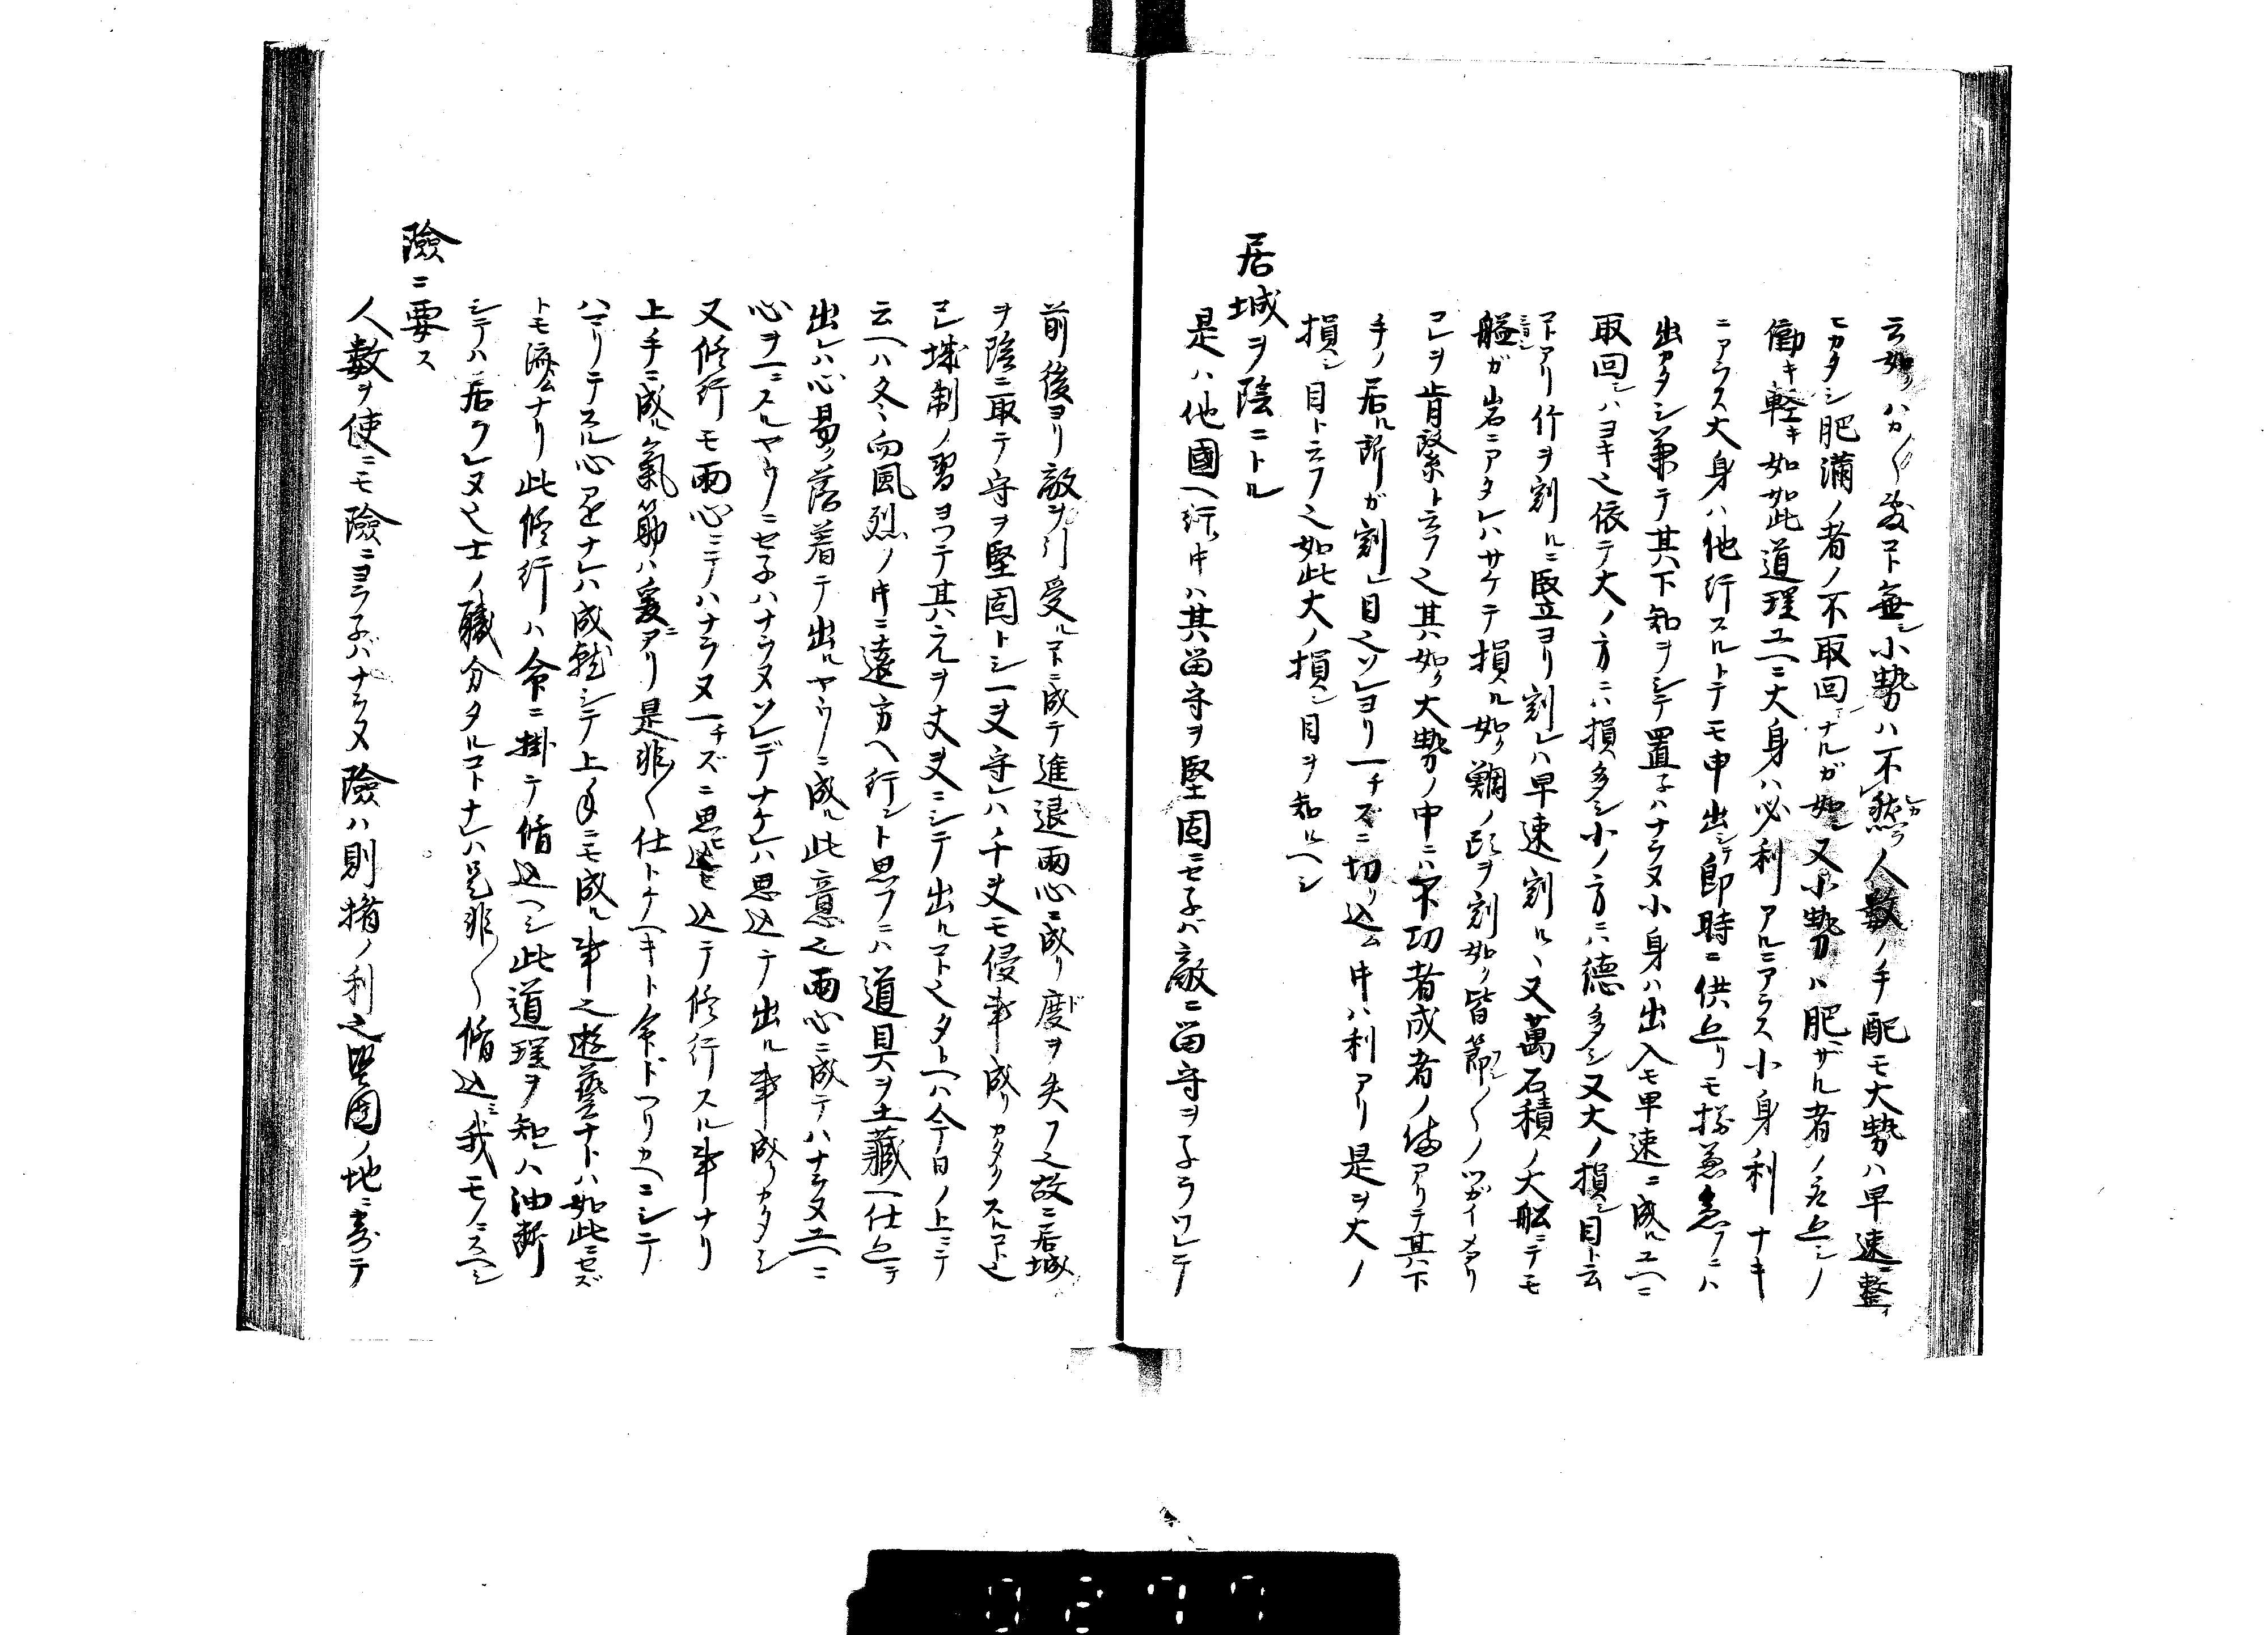 云如クハカ〱敷コト無シ小勢ハ不然ラ人数ノ手配モ大勢ハ早速ニ整イ
モカタシ肥満ノ者ノ不取回ナルガ如シ又小勢ハ肥ザル者ノ居立ノ
働キ軽キ如如此道理ユヘニ大身ハ必利アルニアラス小身利ナキ
ニアラス大身ハ他行スルトテモ申出シテ即時ニ供立リモ惣急ニハ
出カタシ兼テ其下知ヲシテ置子ハナラヌ小身ハ出入モ早速ニ成ルユヘニ
取回シハヨキ也依テ大ノ方ニハ損多シ小ノ方ニハ徳多シ又大ノ損シ目ト云
コトアリ竹ヲ割ルニ竪ヨリ割レハ早速割ルヽ又萬石積ノ大舩ニテモ
艫ガ岩ニアタレハサケテ損ル如ク鯛ノ頭ヲ割如ク皆節〱ノツガイメアリ
コレヲ肯綮ト云フ也其如ク大勢ノ中ニハ不功者成者ノ備アリテ其下
手ノ居ル所ガ割レ目也ソレヨリ一チズニ切リ込ム時ハ利アリ是ヲ大ノ
損シ目ト云フ也如此大ノ損シ目ヲ知ルヘシ
居城ヲ陰ニトル
是ハ他國ヘ行時ハ其留守ヲ堅固ニセ子バ敵ニ留守ヲ子ラワレテ
前後ヨリ敵ヲ引受ルコトニ成テ進退両心ニ成リ度ヲ失フ也故ニ居城
ヲ陰ニ取テ守ヲ堅固トシ一夫守レハ千丈モ侵事成リカタクスルコト也
己城制ノ習ヨツテ其元ヲ丈夫ニシテ出ルコト也タトヘハ今日ノ上ニテ
云ヘハ冬向風烈ノ時ニ遠方ヘ行ント思フニハ道具ヲ土藏ヘ仕立テ
出レハ心易ク落着テ出ルヤウニ成ル此意也両心ニ成テハナラヌユヘニ
心ヲ一ニスルヤウニセ子ハナラヌソレデナケレハ思込テ出ル事成リカタシ
又修行モ両心ニテハナラヌ一チズニ思ヒ込モ込テ修行スル事ナリ
上手ニ成ル氣節ハ爰ニアリ是非〱仕トケヘキト命ドツリカヘニシテ
ハマリテスル心足ナレハ成就シテ上手ニモ成ル事也遊藝ナトハ如此ニセズ
トモ済ムナリ此修行ハ命ニ掛テ脩込ヘシ此道理ヲ知レハ油断
シテハ居ラレヌ也士ノ職分タルコトナレハ是非〱脩込ミ我モノニスヘシ
險ニ要ス
人数ヲ使ニモ險ニヨラ子バナラヌ險ハ則搢ノ利也堅固ノ地ニ寄テ